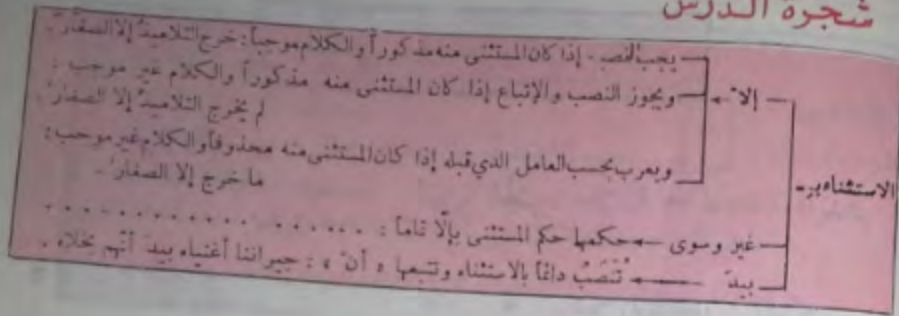 شجرة الدرس
يجب النصب - إذا كان المستثنى منه مذكوراً والكلام موجباً: خرج التلاميذُ إلا الصغارَ.
ويجوز النصب والإتباع إذا كان المستثنى منه مذكوراً والكلام غير موجب:
إلا ←
لم يخرج التلاميذُ إلا الصغار.
ويعرب بحسب العامل الذي قبله إذا كان المستثنى منه محذوفاً والكلام غير موجب:
الاستثناء بـ
ما خرج إلا الصغارُ.
غير وسوى ← حكمها حكم المستثنى بإلّا تماماً: . . . . . . . . . . . . . . . .
بيدَ ← تُنصَبُ دائماً بالاستثناء وتتبعها « أنّ » : جيراننا أغنياء بيدَ أنّهم بخلاء.